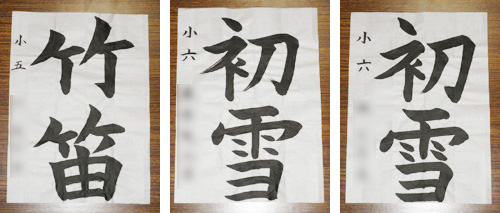 竹笛
小五
初雪
小六
初雪
小六